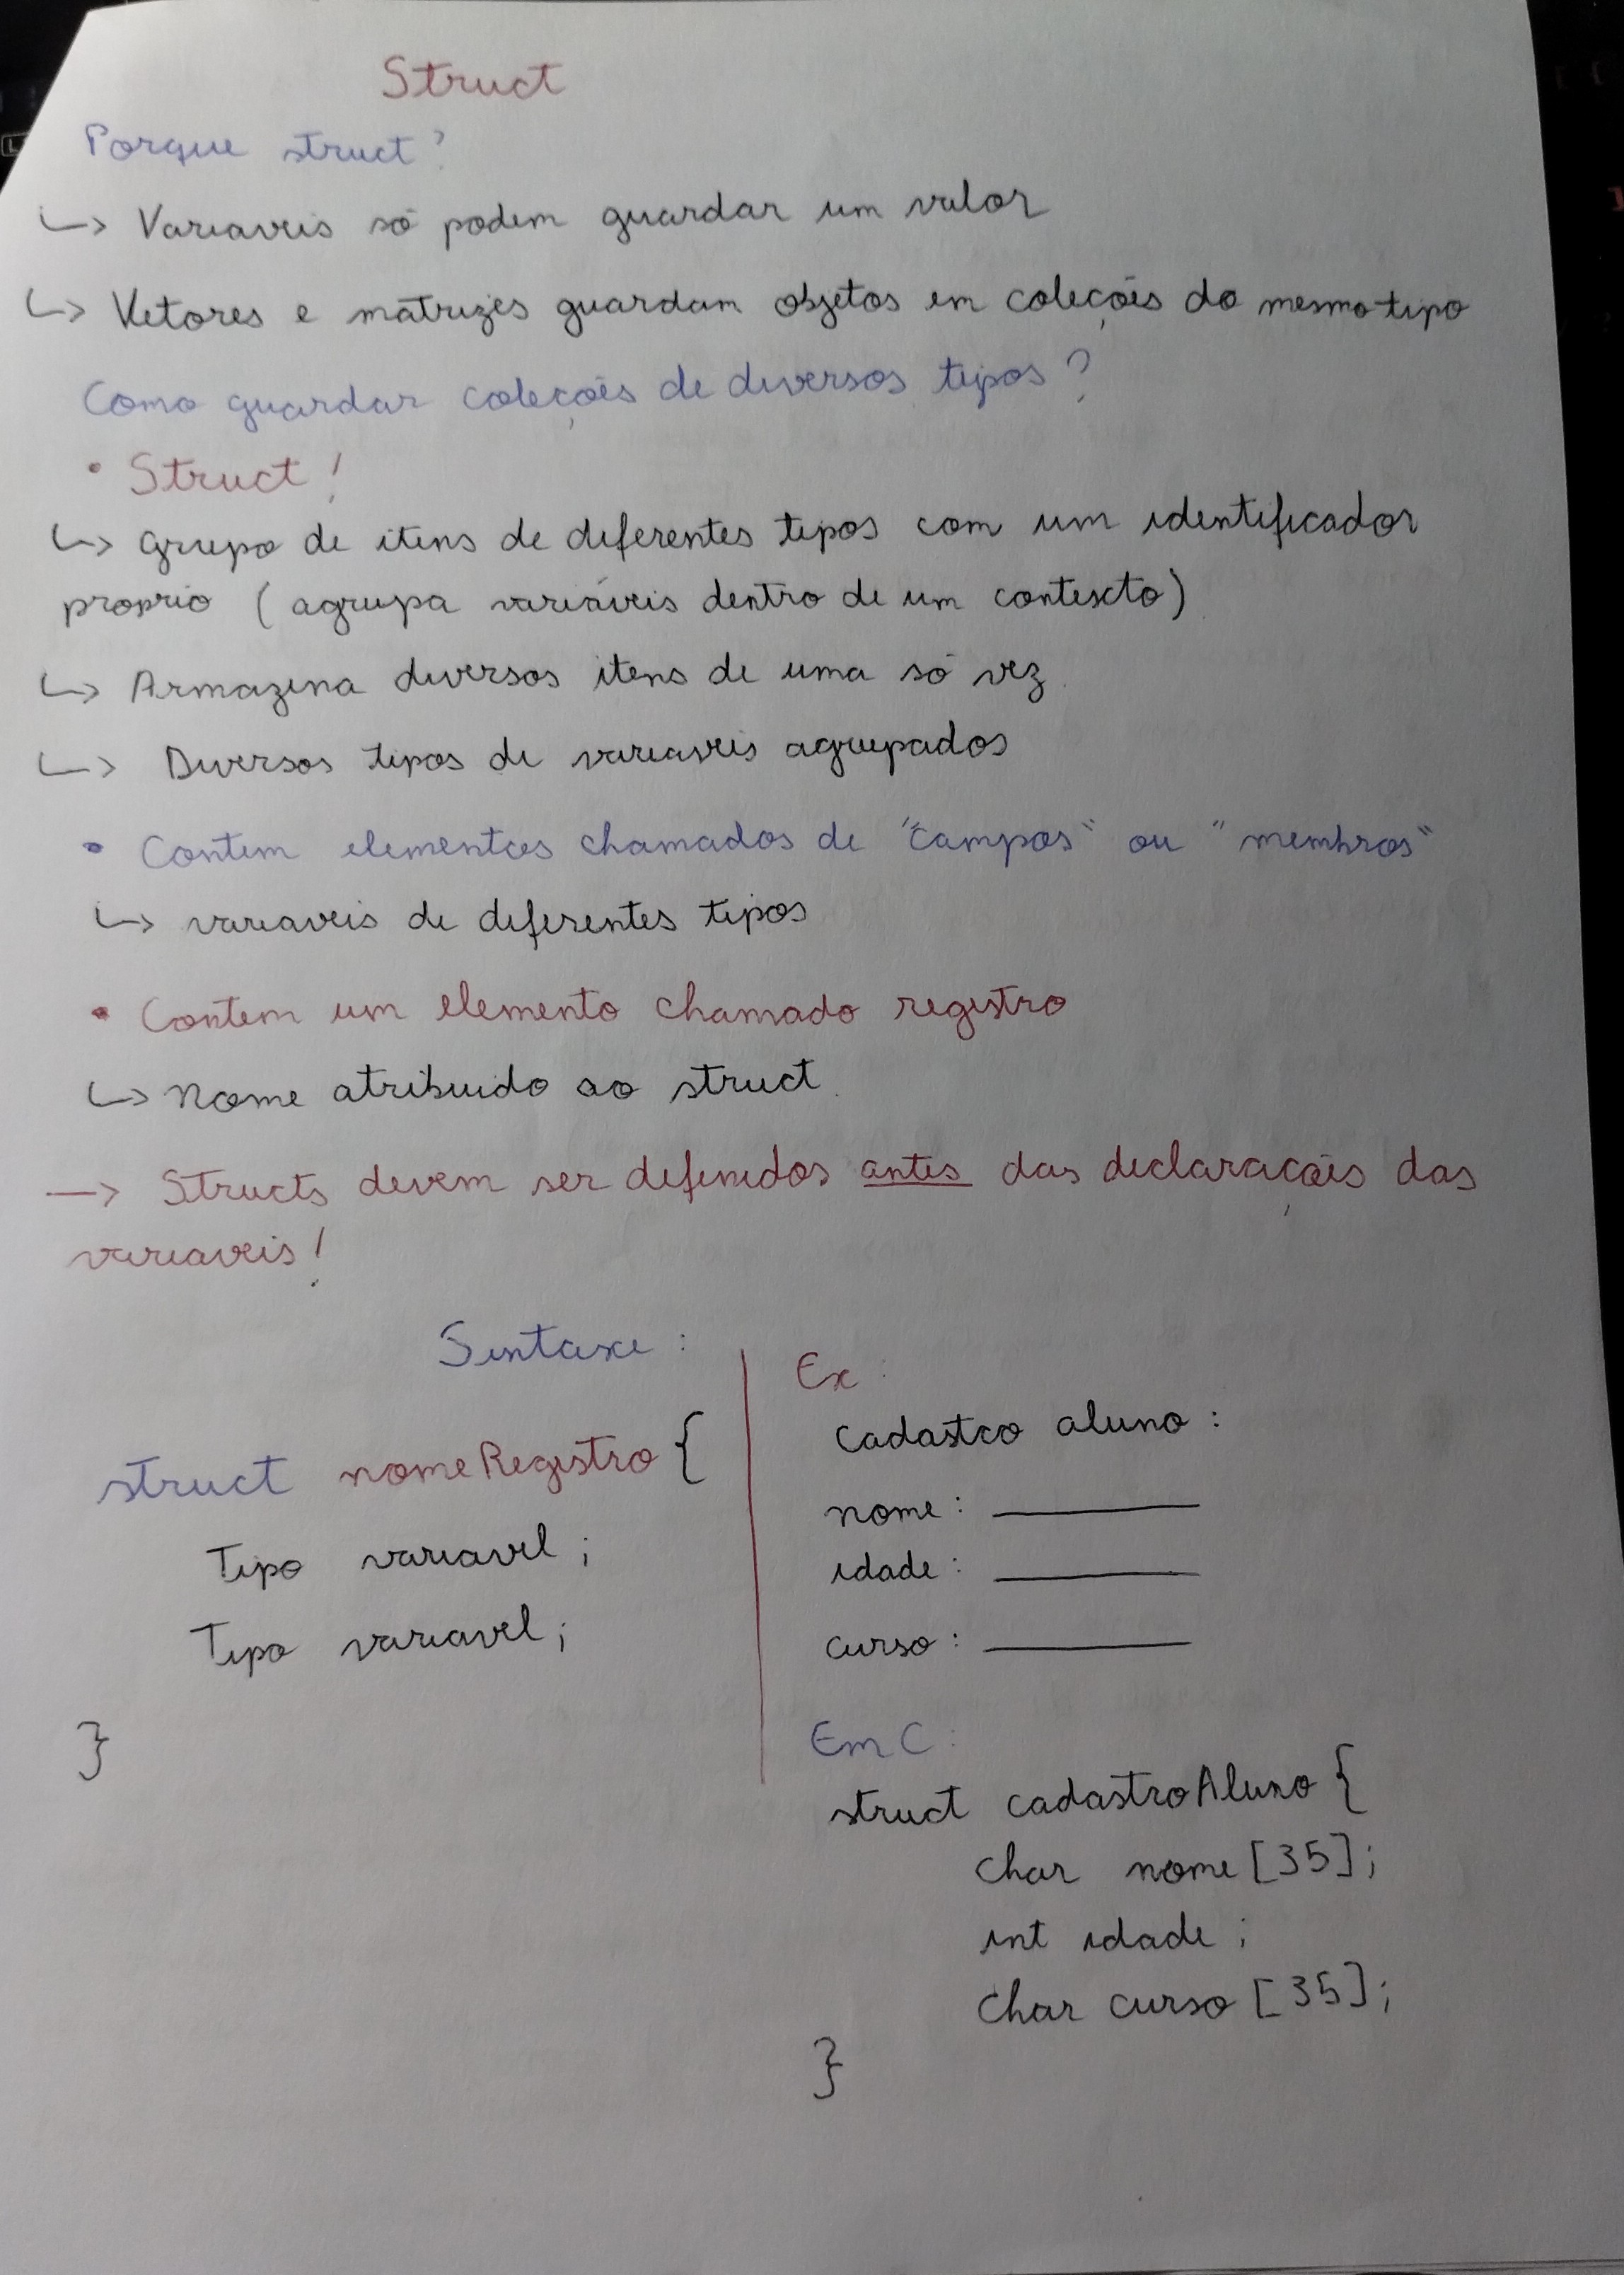 Struct
Porque struct?
↳ Variaveis só podem guardar um valor
↳ Vetores e matrizes guardam objetos em coleções do mesmo tipo
Como guardar coleções de diversos tipos?
• Struct!
↳ grupo de itens de diferentes tipos com um identificador
proprio (agrupa variáveis dentro de um contexto)
↳ Armazena diversos itens de uma só vez
↳ Diversos tipos de variaveis agrupados
• Contem elementos chamados de "campos" ou "membros"
↳ variaveis de diferentes tipos
• Contem um elemento chamado registro
↳ Nome atribuido ao struct
→ Structs devem ser definidos antes das declarações das
variaveis!
Sintaxe:
struct nomeRegistro {
Tipo variavel;
Tipo variavel;
}
Ex:
Cadastro aluno:
nome: ______
idade: ______
curso: ______
Em C:
struct cadastroAluno {
char nome [35];
int idade;
char curso [35];
}